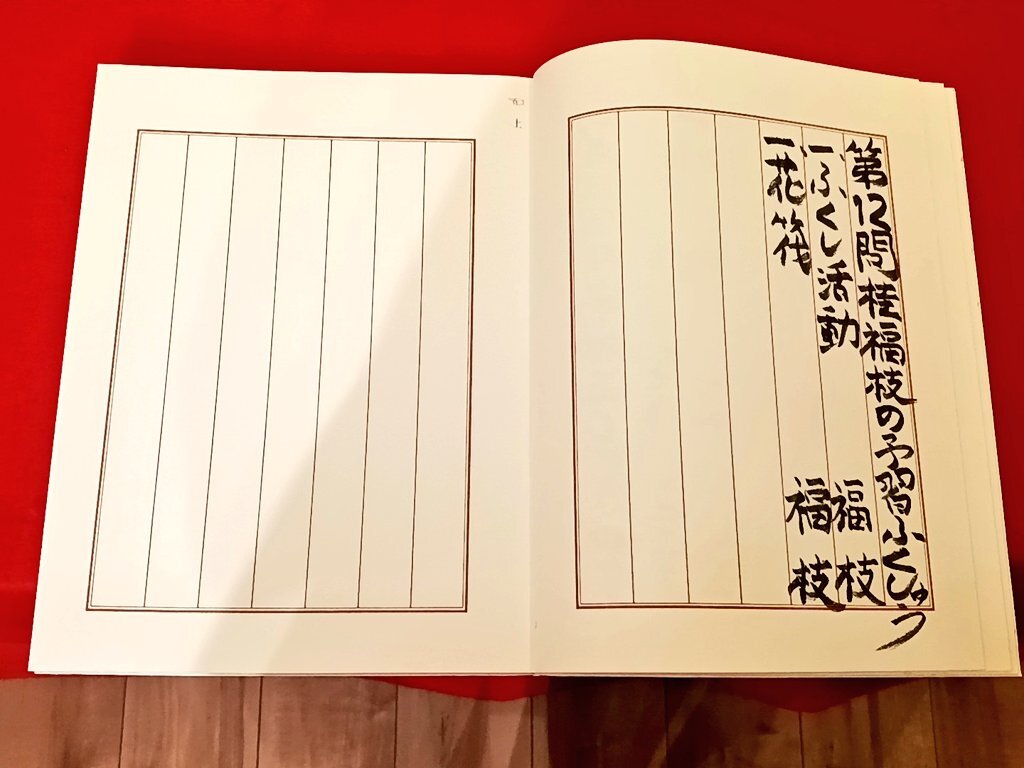 第12問桂福枝の予習ふくしゅう
一ふくし活動 福枝
一花筏 福枝
上